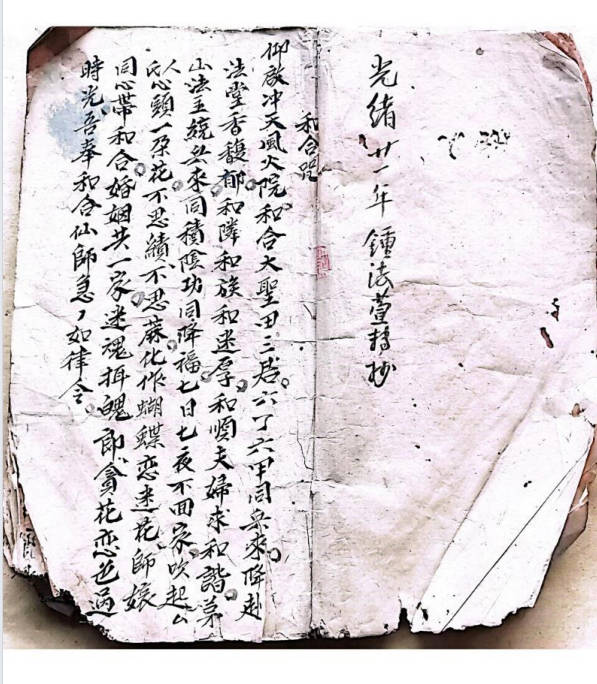 光緒廿一年鍾法萱轉抄
和合咒
仰啟冲天風火院和合大聖田三君六丁六甲同兵來降赴
法堂香馥郁和隣和族和迷厚和順夫婦求和諧茅
山法主統兵來同積陰功同降福七日七夜不回家吹起
人心頭一朶花不思績不思蔴化作蝴蝶恋迷花師娘
同心帶和合婚姻共一家迷魂押魄郎貪花恋色過
時光吾奉和合仙師急〃如律令